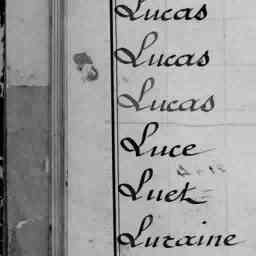 Lucas
Lucas
Lucas
Luce
Luet
Luraine